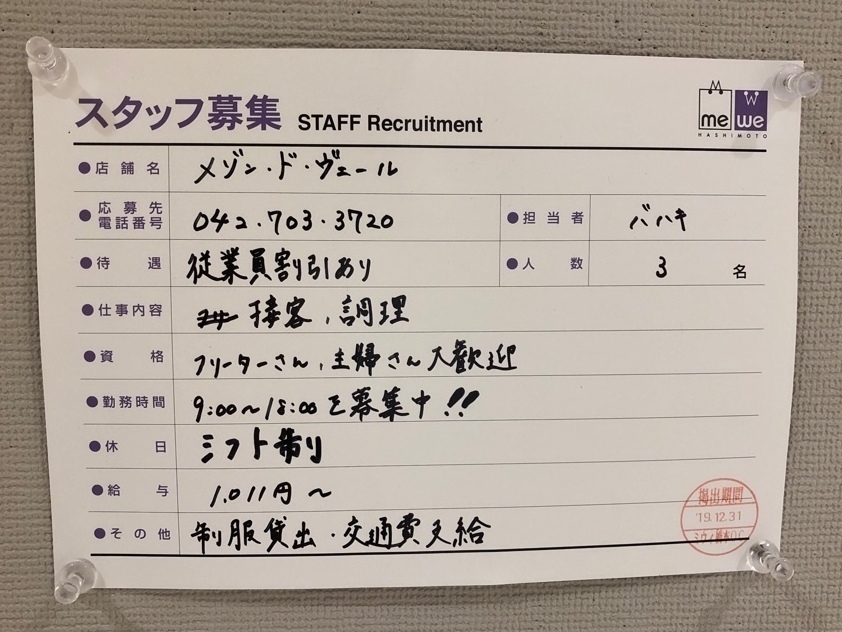 スタッフ募集 STAFF Recruitment
me we
HASHIMOTO
●店舗名 メゾン・ド・ヴェール
●応募先電話番号 042・703・3720 ●担当者 バハキ
●待遇 従業員割引あり ●人数 3 名
●仕事内容 接客、調理
●資格 フリーターさん、主婦さん大歓迎
●勤務時間 9:00〜18:00を募集中!!
●休日 シフト制
●給与 1,011円〜
●その他 制服貸出・交通費支給
掲出期間
'19.12.31
ミウィ橋本O.C